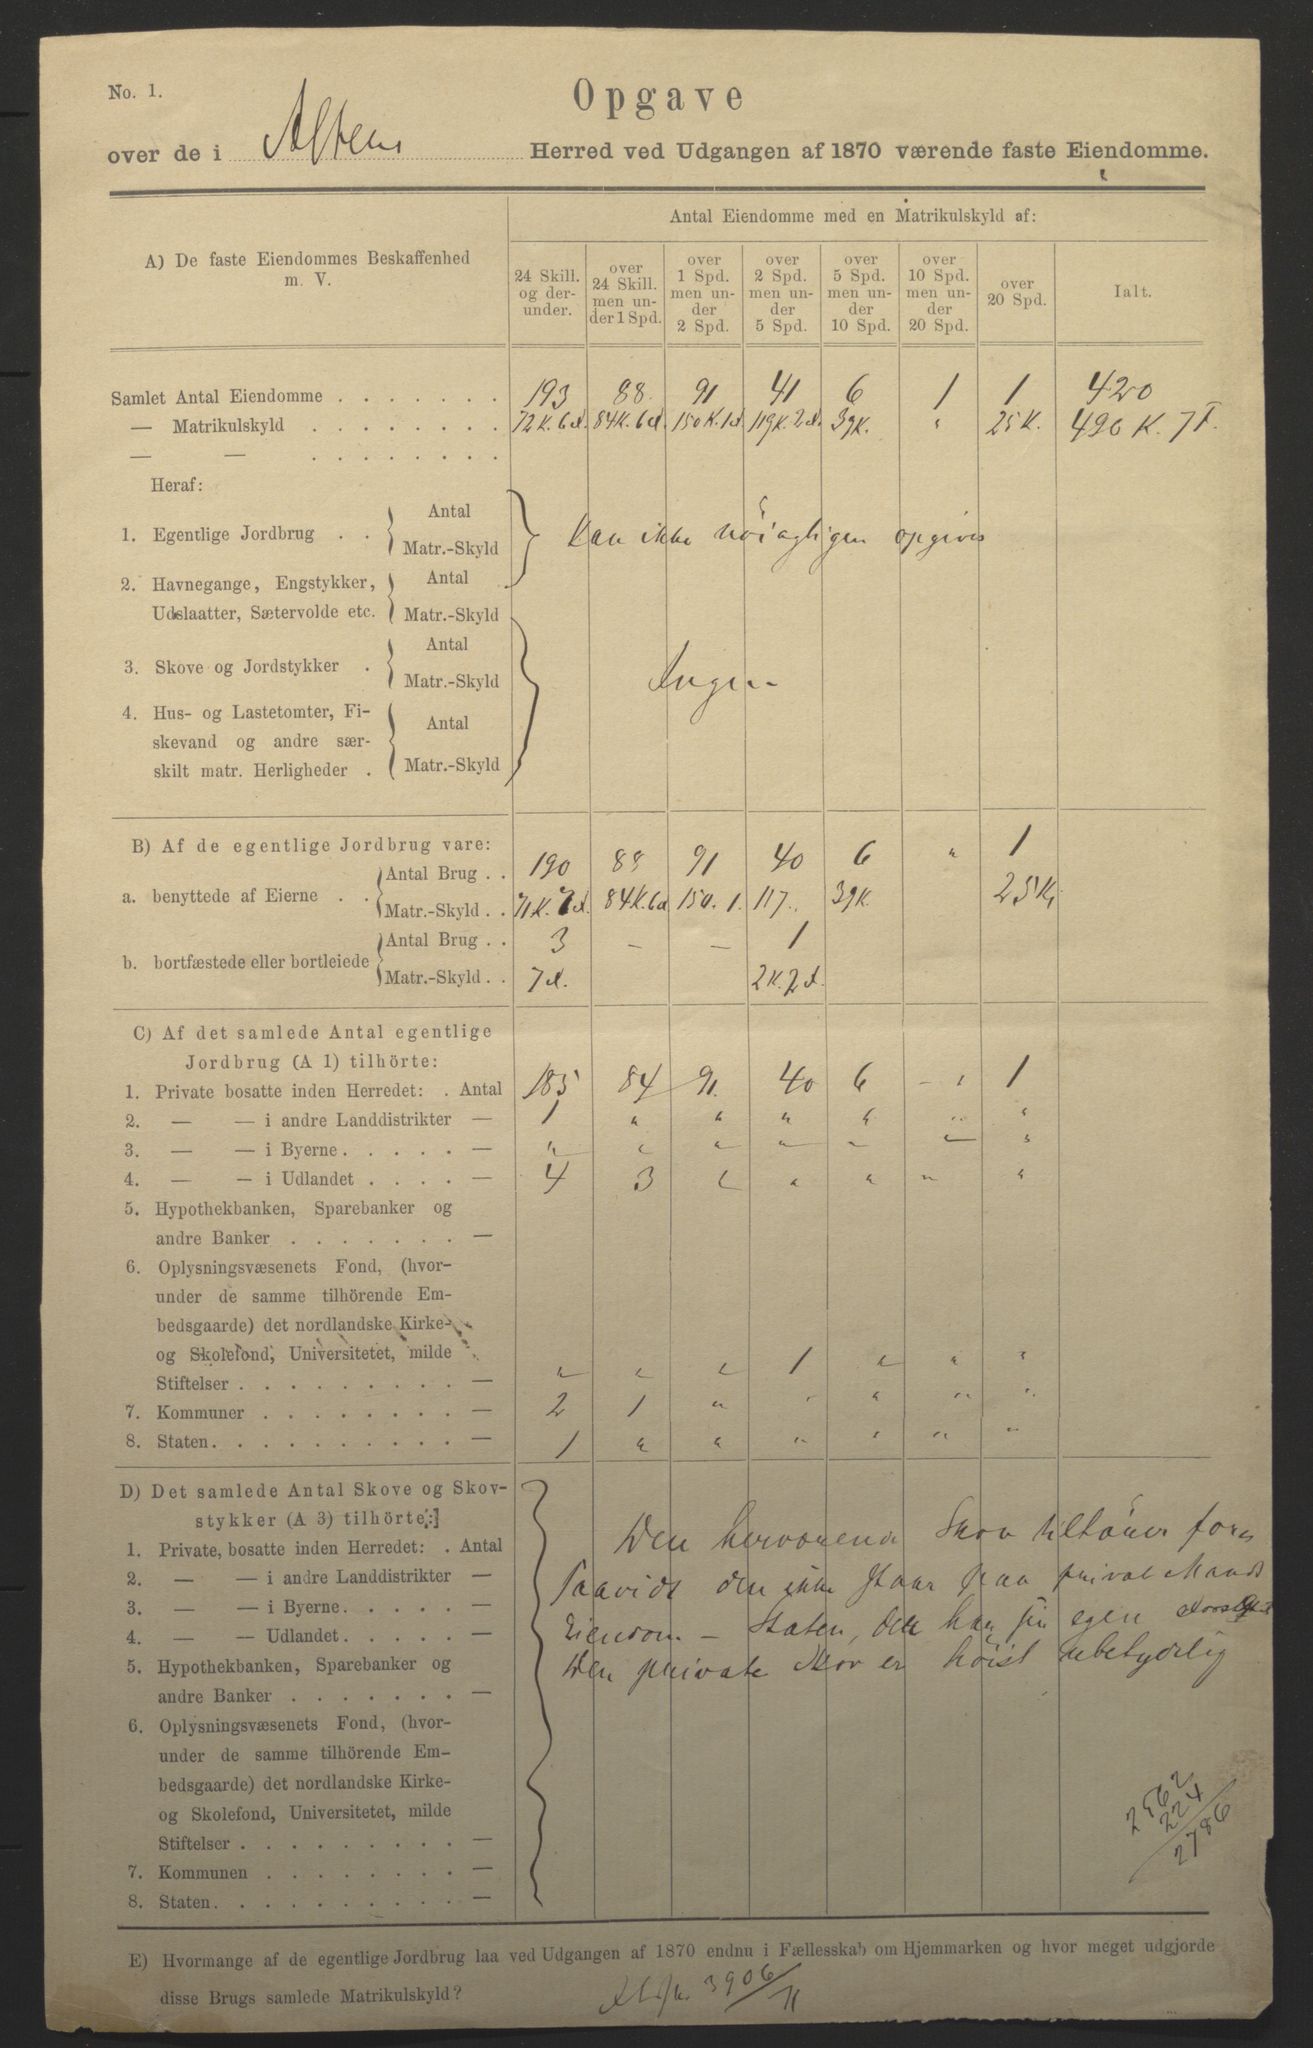 No. 1.
Opgave
over de i Altens Herred ved Udgangen af 1870 værende faste Eiendomme.
A) De faste Eiendommes Beskaffenhed
m. V.
Antal Eiendomme med en Matrikulskyld af:
24 Skill. og der- under.
over 24 Skill. men un- der 1 Spd.
over 1 Spd. men un- der 2 Spd.
over 2 Spd. men un- der 5 Spd.
over 5 Spd. men un- der 10 Spd.
over 10 Spd. men un- der 20 Spd.
over 20 Spd.
Ialt.
Samlet Antal Eiendomme . . . . . . . 193 88. 91 41 6 1 1 420
— Matrikulskyld . . . . . . . . 72K.6d. 84K.6d. 150K.1d. 119K.2d. 39K. " 25K. 490 K. 7
— — . . . . . . . .
Heraf:
1. Egentlige Jordbrug . . Antal
Matr.-Skyld
Kan ikke nöiagtigen opgives
2. Havnegange, Engstykker, Antal
Udslaatter, Sætervolde etc. Matr.-Skyld
3. Skove og Jordstykker . Antal
Matr.-Skyld
Ingen
4. Hus- og Lastetomter, Fi- Antal
skevand og andre sær-
skilt matr. Herligheder . Matr.-Skyld
B) Af de egentlige Jordbrug vare:
a. benyttede af Eierne . . Antal Brug . . 190 88 91 40 6 " 1
Matr.-Skyld . . 71K. 7d. 84K.6d 150. 1. 117. 39K. 25K.
b. bortfæstede eller bortleiede Antal Brug . . 3 — — 1
Matr.-Skyld . . 7d. 2K.2d.
C) Af det samlede Antal egentlige
Jordbrug (A 1) tilhörte:
1. Private bosatte inden Herredet: . Antal 185 84 91. 40 6 — " 1
2. — — i andre Landdistrikter — 1 " " " " " "
3. — — i Byerne . . . . . — " " " " " " "
4. — — i Udlandet . . . . — 4 3 " " " " "
5. Hypothekbanken, Sparebanker og
andre Banker . . . . . . . —
6. Oplysningsvæsenets Fond, (hvor-
under de samme tilhörende Em-
bedsgaarde) det nordlandske Kirke-
og Skolefond, Universitetet, milde
Stiftelser . . . . . . . . . — " " " 1 " " "
7. Kommuner . . . . . . . . — 2 1 " " " " "
8. Staten . . . . . . . . . . — 1 " " " " " "
D) Det samlede Antal Skove og Skov-
stykker (A 3) tilhörte:]
1. Private, bosatte inden Herredet: . Antal
2. — — i andre Landdistrikter —
3. — — i Byerne . . . . . —
4. — — Udlandet . . . . . —
5. Hypothekbanken, Sparebanker og
andre Banker . . . . . . . —
6. Oplysningsvæsenets Fond, (hvor-
under de samme tilhörende Em-
bedsgaarde) det nordlandske Kirke-
og Skolefond, Universitetet, milde
Stiftelser . . . . . . . . . —
7. Kommunen . . . . . . . . —
8. Staten . . . . . . . . . . —
Den herværende Skov tilhörer for
saavidt den ikke staar paa privat Mands
Eiendom — Staten, der har sin egen
Den private Skov er höist ubetydelig
2562
224
2786
E) Hvormange af de egentlige Jordbrug laa ved Udgangen af 1870 endnu i Fællesskab om Hjemmarken og hvor meget udgjorde
disse Brugs samlede Matrikulskyld?
3906/71